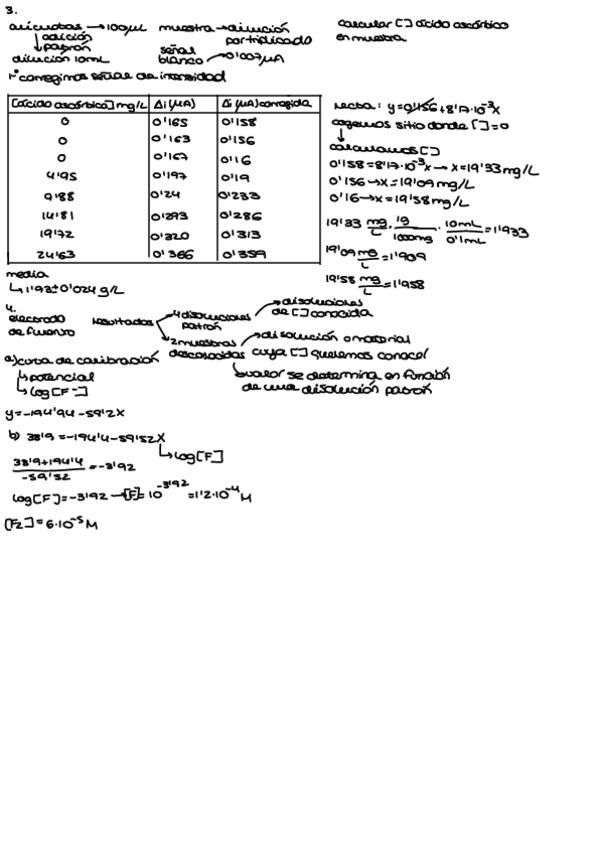 3.
alícuotas → 100µL muestra → dilución por triplicado
calcular [] ácido ascórbico en muestra
↓ adición patrón
dilución 10mL
señal blanco → 0'007µA
1º corregimos señal de intensidad
[ácido ascórbico] mg/L | Δi (µA) | Δi (µA) corregida
0 | 0'165 | 0'158
0 | 0'163 | 0'156
0 | 0'167 | 0'16
4'95 | 0'197 | 0'19
9'88 | 0'24 | 0'233
14'81 | 0'293 | 0'286
19'72 | 0'320 | 0'313
24'63 | 0'366 | 0'359
recta: y=0,156+8'17·10⁻³x
cogemos sitio donde []=0
↓
calculamos []
0'158=8'17·10⁻³x → x=19'33mg/L
0'156→x=19'09mg/L
0'16→x=19'58mg/L
19'33 mg/L · 1g/1000mg · 10mL/0'1mL =1'933
19'09 mg/L =1'909
19'58 mg/L =1'958
media
↳ 1'93±0'024 g/L
4.
electrodo de fluoruro
resultados → 4 disoluciones patrón → disoluciones de [] conocida
→ 2 muestras desconocidas → disolución o material cuya [] queremos conocer
↳ valor se determina en función de una disolución patrón
a) curva de calibración
↳ potencial
↳ log[F⁻]
y=-194'94-59'2x
b) 38'9=-194'4-59'52x
↳ log[F]
38'9+194'4/-59'52 =-3'92
log[F]=-3'92 → [F]=10^-3'92=1'2·10⁻⁴ M
[F2]=6·10⁻⁵ M